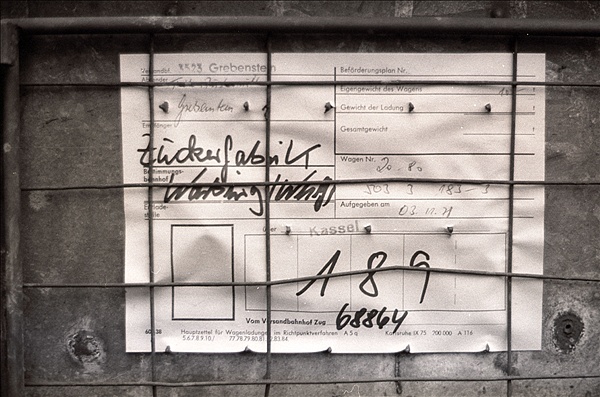 Versandbf. 3523 Grebenstein
Beförderungsplan Nr.
Absender
Eigengewicht des Wagens t
Grebenstein
Gewicht der Ladung t
Empfänger
Gesamtgewicht t
Zuckerfabrik
Bestimmungs-
bahnhof
Warburg
Wagen Nr. 20-80
503 3 183-3
Entlade-
stelle
Aufgegeben am 03.11.79
über Kassel
189
Vom Versandbahnhof Zug 68864
Hauptzettel für Wagenladungen im Richtpunktverfahren A 5 q Karlsruhe IX 75 700.000 A 116
5.6.7.8.9.10./ 77.78.79.80.81.82.83.84.